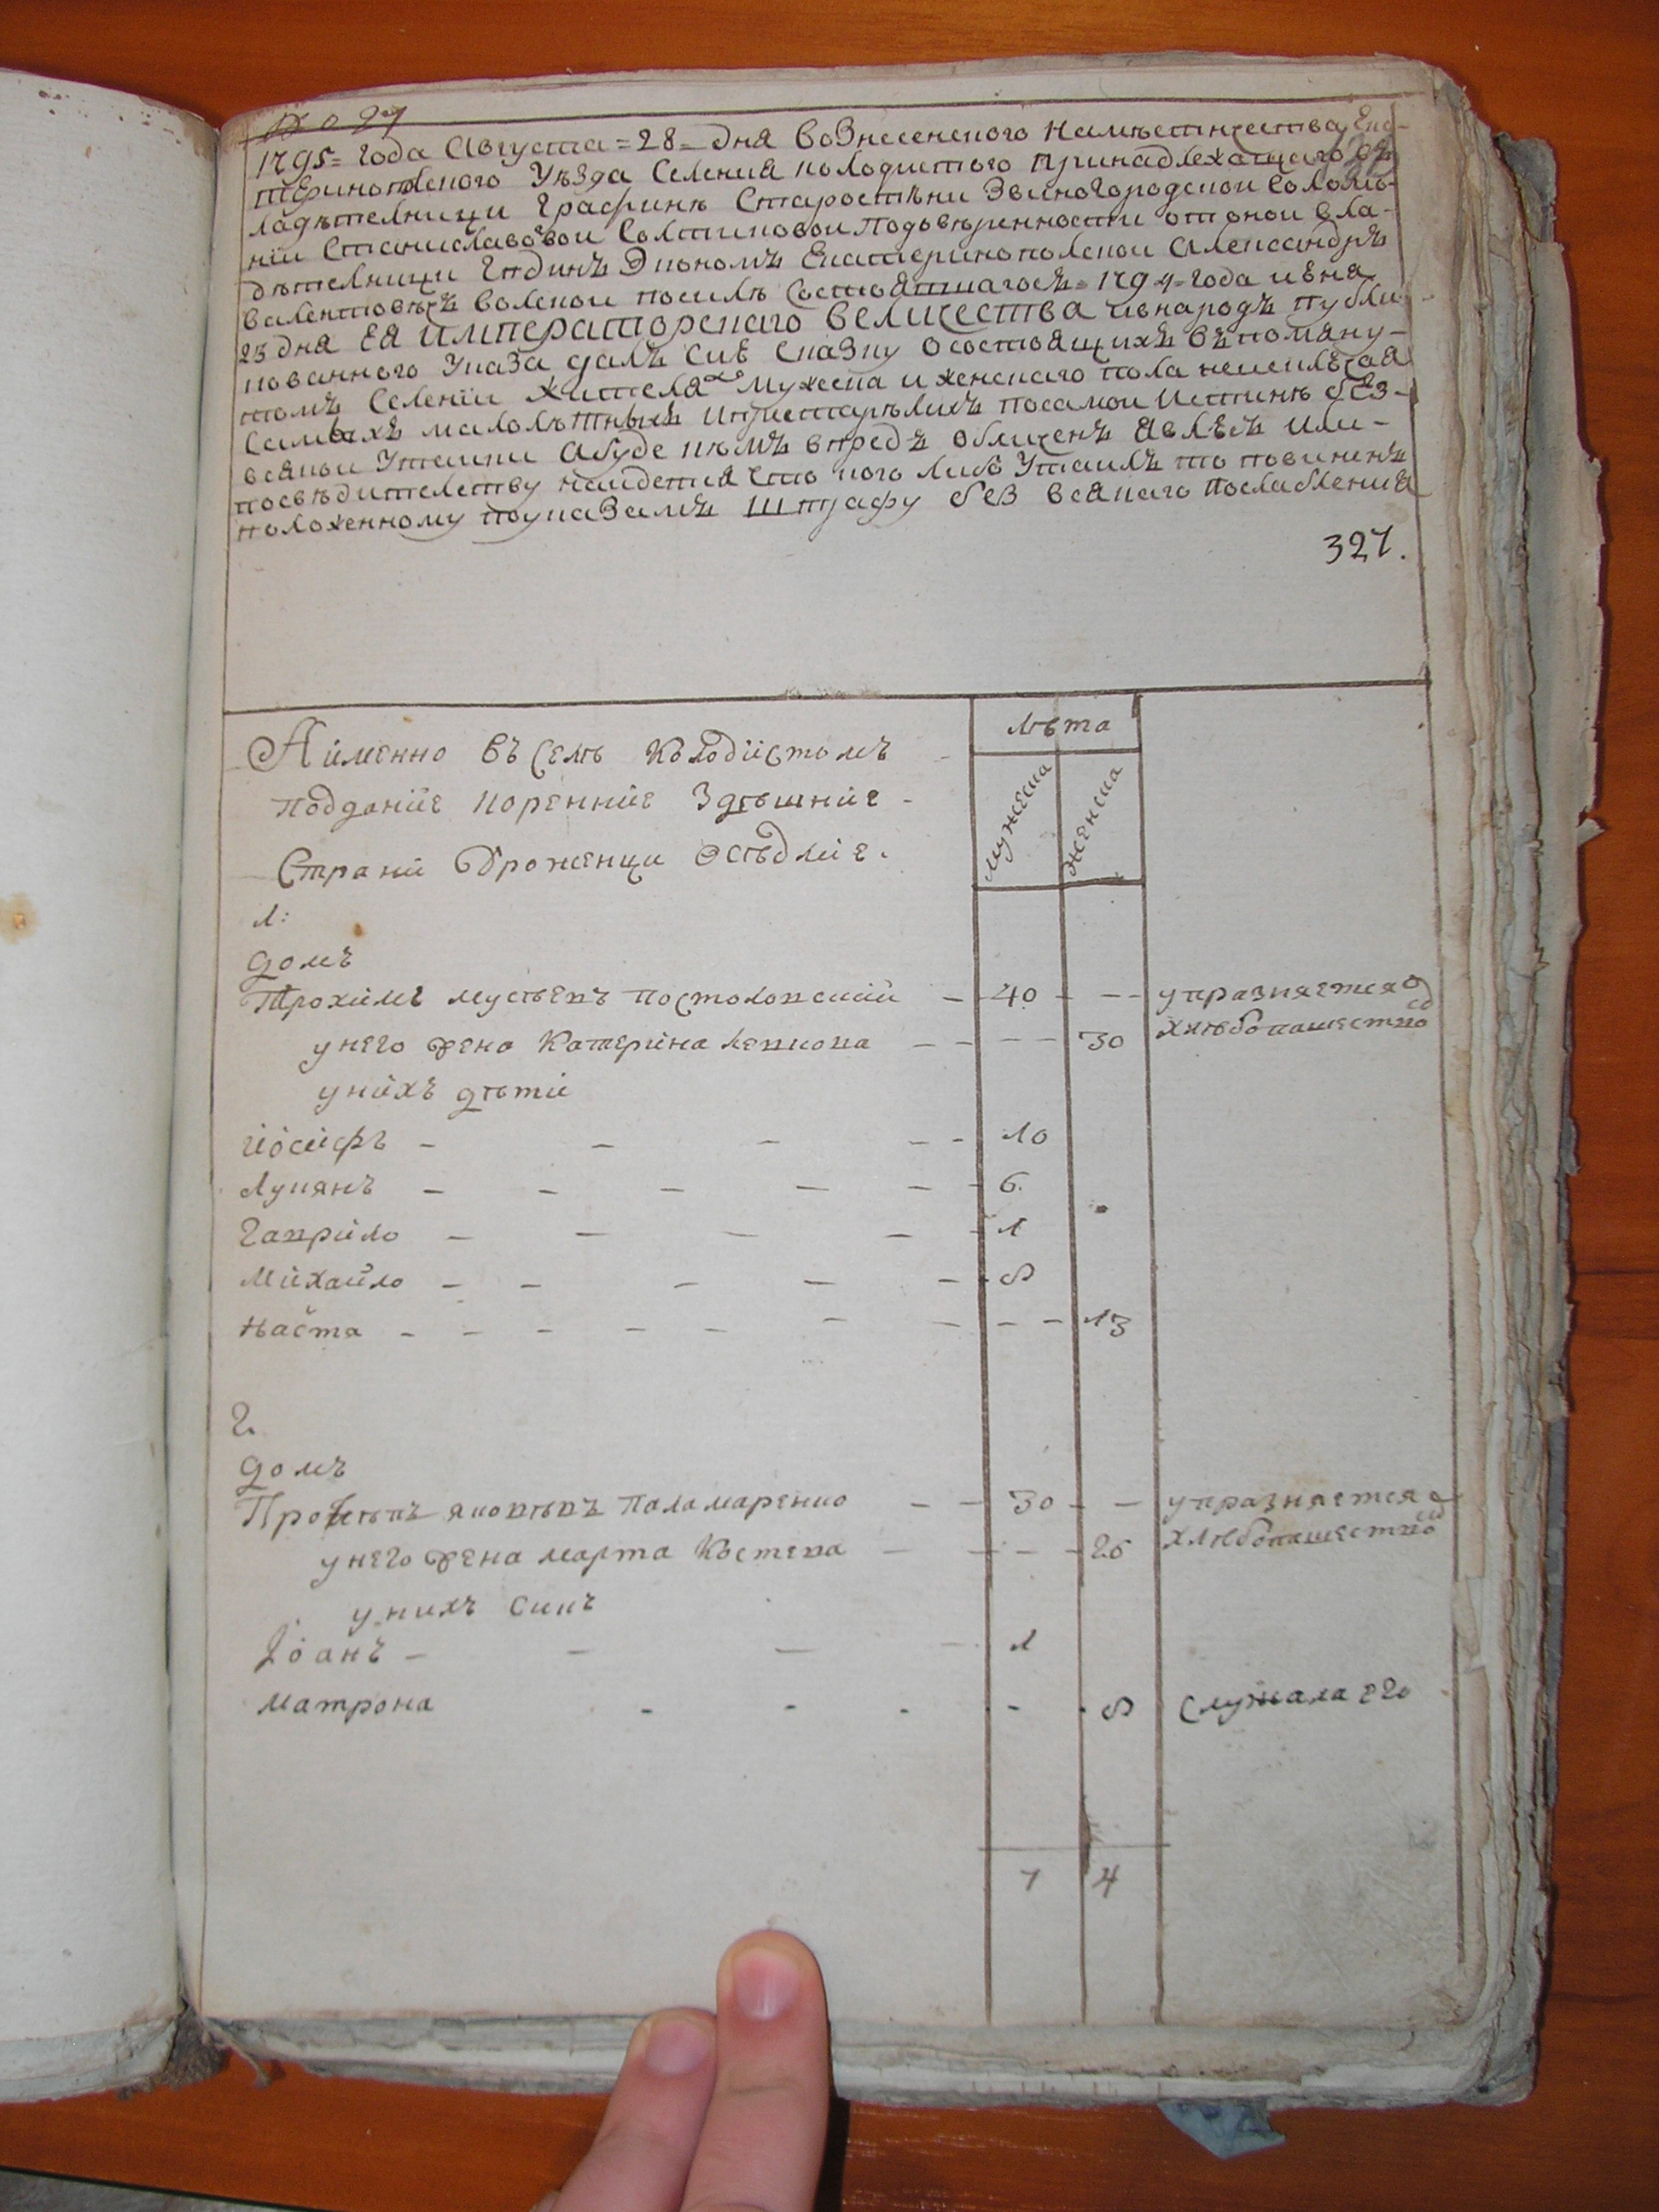 № 27
1795= года Августа = 28 = дня вознесенского Наместничества Ека-
теринополского Уѣзда Селения колодистого принадлежащого вѣ
ладѣтелници Графинѣ Старостѣни Звиногородской Соломѣ-
нiи Станиславовой Солтиковой подовѣренности от оной вла-
дѣтелници Гпдинъ Экономъ Екатеринополской Александръ
валентовъ Волской посилѣ Состоявшагось = 1794 = года июня
23 дня ЕЯ ИМПЕРАТОРСКАГО ВЕЛИЧЕСТВА ивнародъ публи-
кованного Указа далъ сиѣ сказку осостоящихъ въ помяну-
томъ Селенiи жителяхъ мужеска и женскаго пола неисключая
Самыхъ малолѣтныхъ ипрестарѣлихъ посамой истинѣ без-
всякой Утайки абуде кѣмъ впредъ обличенъ явлюсь или-
посвѣдителству найдется что кого либо Утаилъ то повиненъ
положенному поуказамъ штрафу без всякаго послабления
327.
лѣта
Аименно Въ Селѣ Колодiистомъ
Поддание коренние Здѣшние
мужеска
женска
Страни Уроженци Осѣдлие.
1:
домъ
Трохимъ мусѣевъ Постоловский — 40 — — упразняется
хлѣбопашество
у него жена Катерина Левкова — — — — 30
у нихъ дѣти
Иосифъ — — — — — 10
Лукянъ — — — — — — 6.
Гаврило — — — — — 1
Михайло — — — — — 8
Наста — — — — — — — — — 13
2.
домъ
Прокопъ яковлевъ Паламаренко — — 30 — — упразняется
хлѣбопашество
у него жена марта Костева — — — — 25
у нихъ синъ
Iоанъ — — — — 1
Матрона - - - - - 8 служала его
7 4